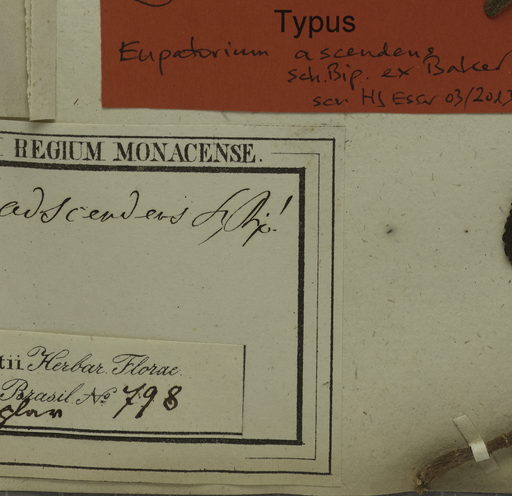 Typus
Eupatorium ascendens
Sch. Bip. ex Baker
03/2013
REGIUM MONACENSE.
adscendens Sz Bip!
tii Herbar. Florae
Brasil No 798